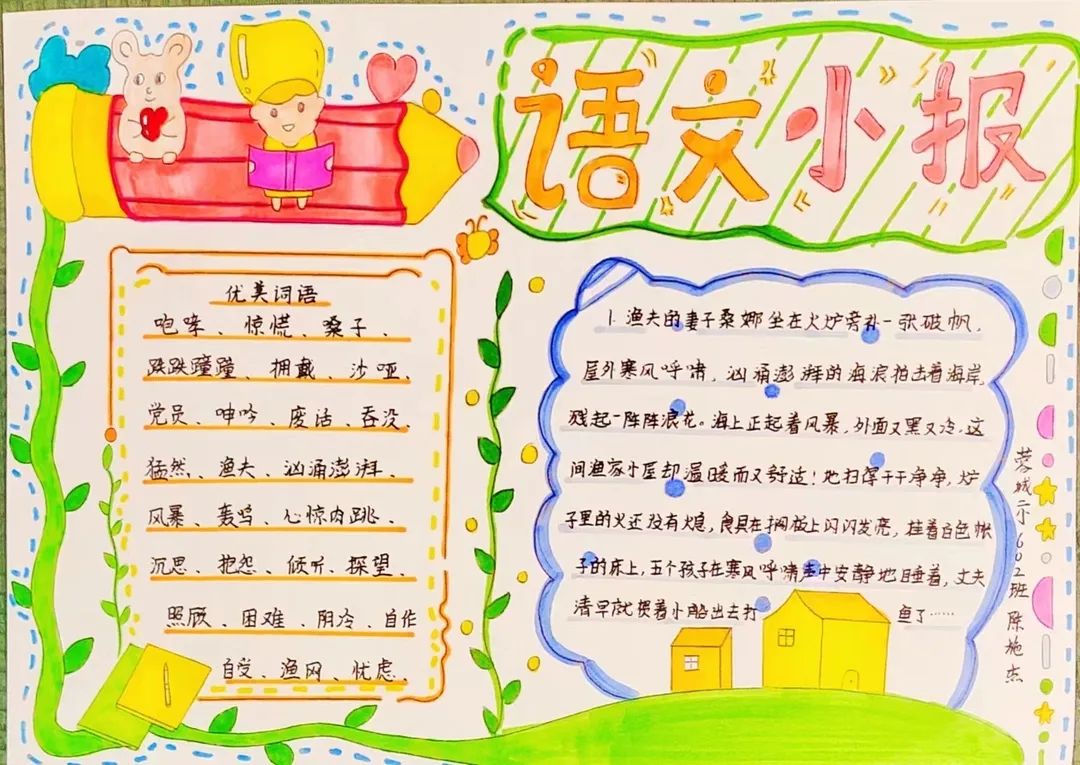 语文小报
优美词语
咆哮、惊慌、嗓子、
跌跌撞撞、拥戴、沙哑、
党员、呻吟、废话、吞没、
猛然、渔夫、汹涌澎湃、
风暴、轰鸣、心惊肉跳、
沉思、抱怨、倾听、探望、
照顾、困难、阴冷、自作
自受、渔网、忧虑、
1.渔夫的妻子桑娜坐在火炉旁补一张破帆,
屋外寒风呼啸,汹涌澎湃的海浪拍击着海岸,
溅起一阵阵浪花。海上正起着风暴,外面又黑又冷,这
间渔家小屋却温暖而又舒适!地扫得干干净净,炉
子里的火还没有熄,食具在搁板上闪闪发亮,挂着白色帐
子的床上,五个孩子在寒风呼啸声中安静地睡着,丈夫
清早就 着小船出去打 鱼了……
蓉城二小602班 陈施杰